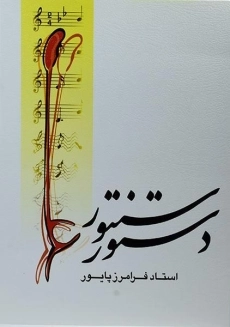 دستور سنتور
استاد فرامرز پایور